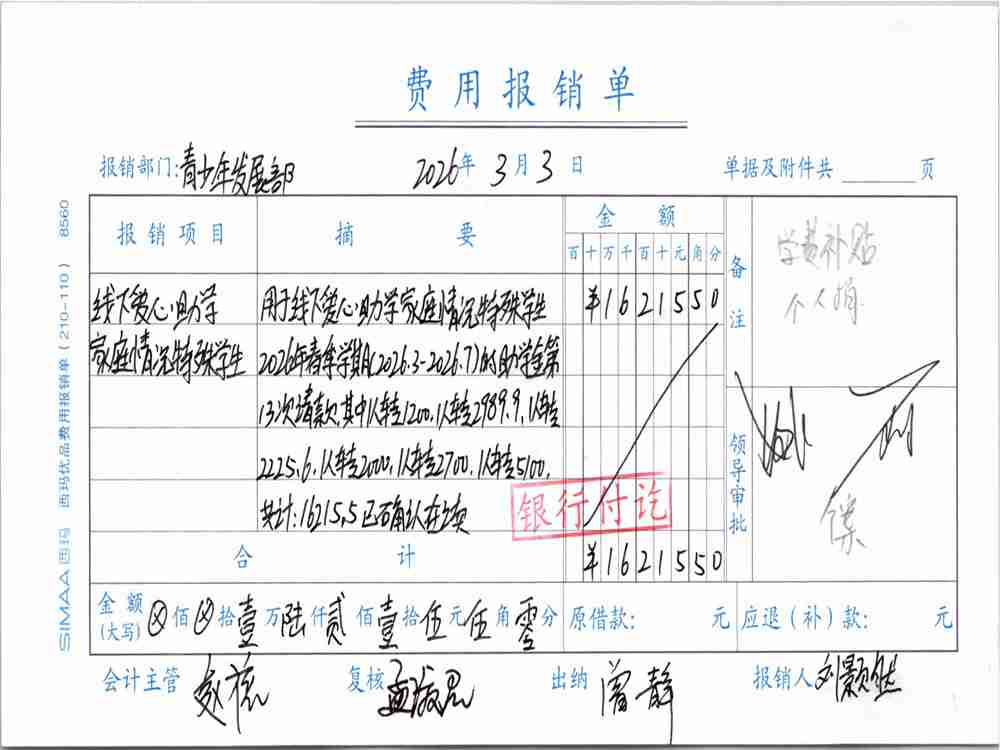 费用报销单
报销部门:青少年发展部 2026年3月3日 单据及附件共 页
报销项目 摘要 金额 备注
百十万千百十元角分
学费补贴
个人捐
线下爱心助学 用于线下爱心助学家庭情况特殊学生 ¥1621550
家庭情况特殊学生 2026年春季学期(2026.3-2026.7)的助学金第
13次请款,其中1人转走1200,1人转走2989.9,1人转走
2225.6,1人转走2000,1人转走2700,1人转走5100,
共计:16215.5已确认在之类
银行付讫
领导审批
合计 ¥1621550
金额(大写)⊗佰⊗拾壹万陆仟贰佰壹拾伍元伍角零分 原借款: 元 应退(补)款: 元
会计主管 复核 出纳 曾静 报销人 刘颢然
SIMAA西玛 西玛优品费用报销单(210-110) 8560